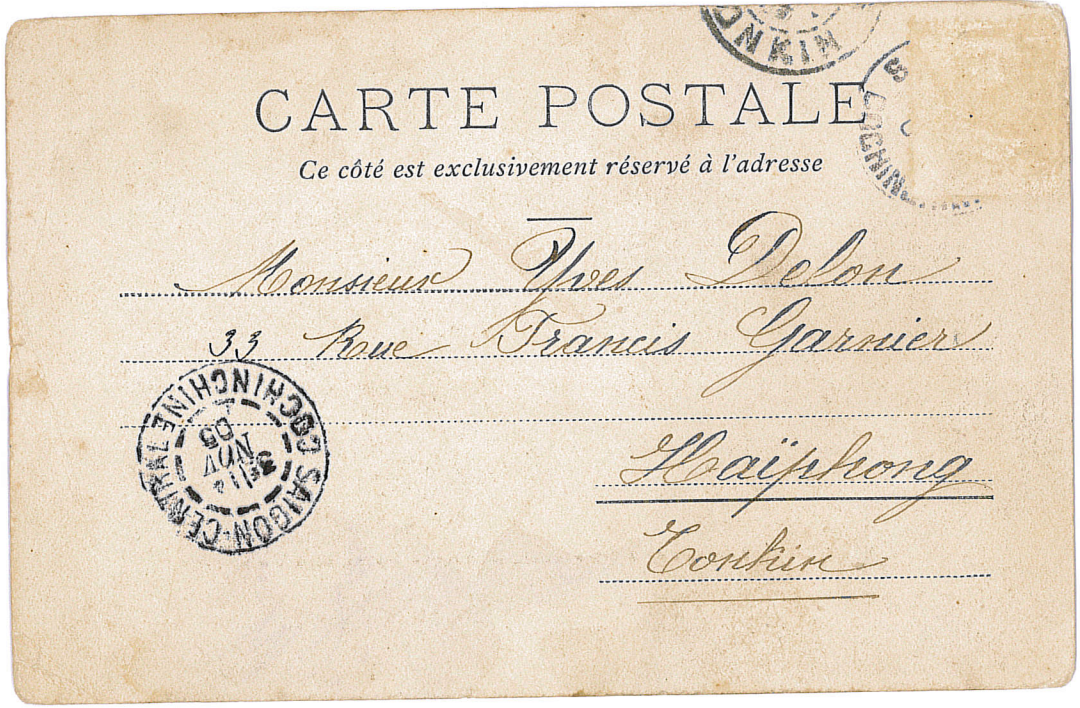 CARTE POSTALE
Ce côté est exclusivement réservé à l'adresse
Monsieur Yves Delon
33 Rue Francis Garnier
Haïphong
Tonkin
SAIGON-CENTRAL COCHINCHINE
14
NOV
05
COCHIN